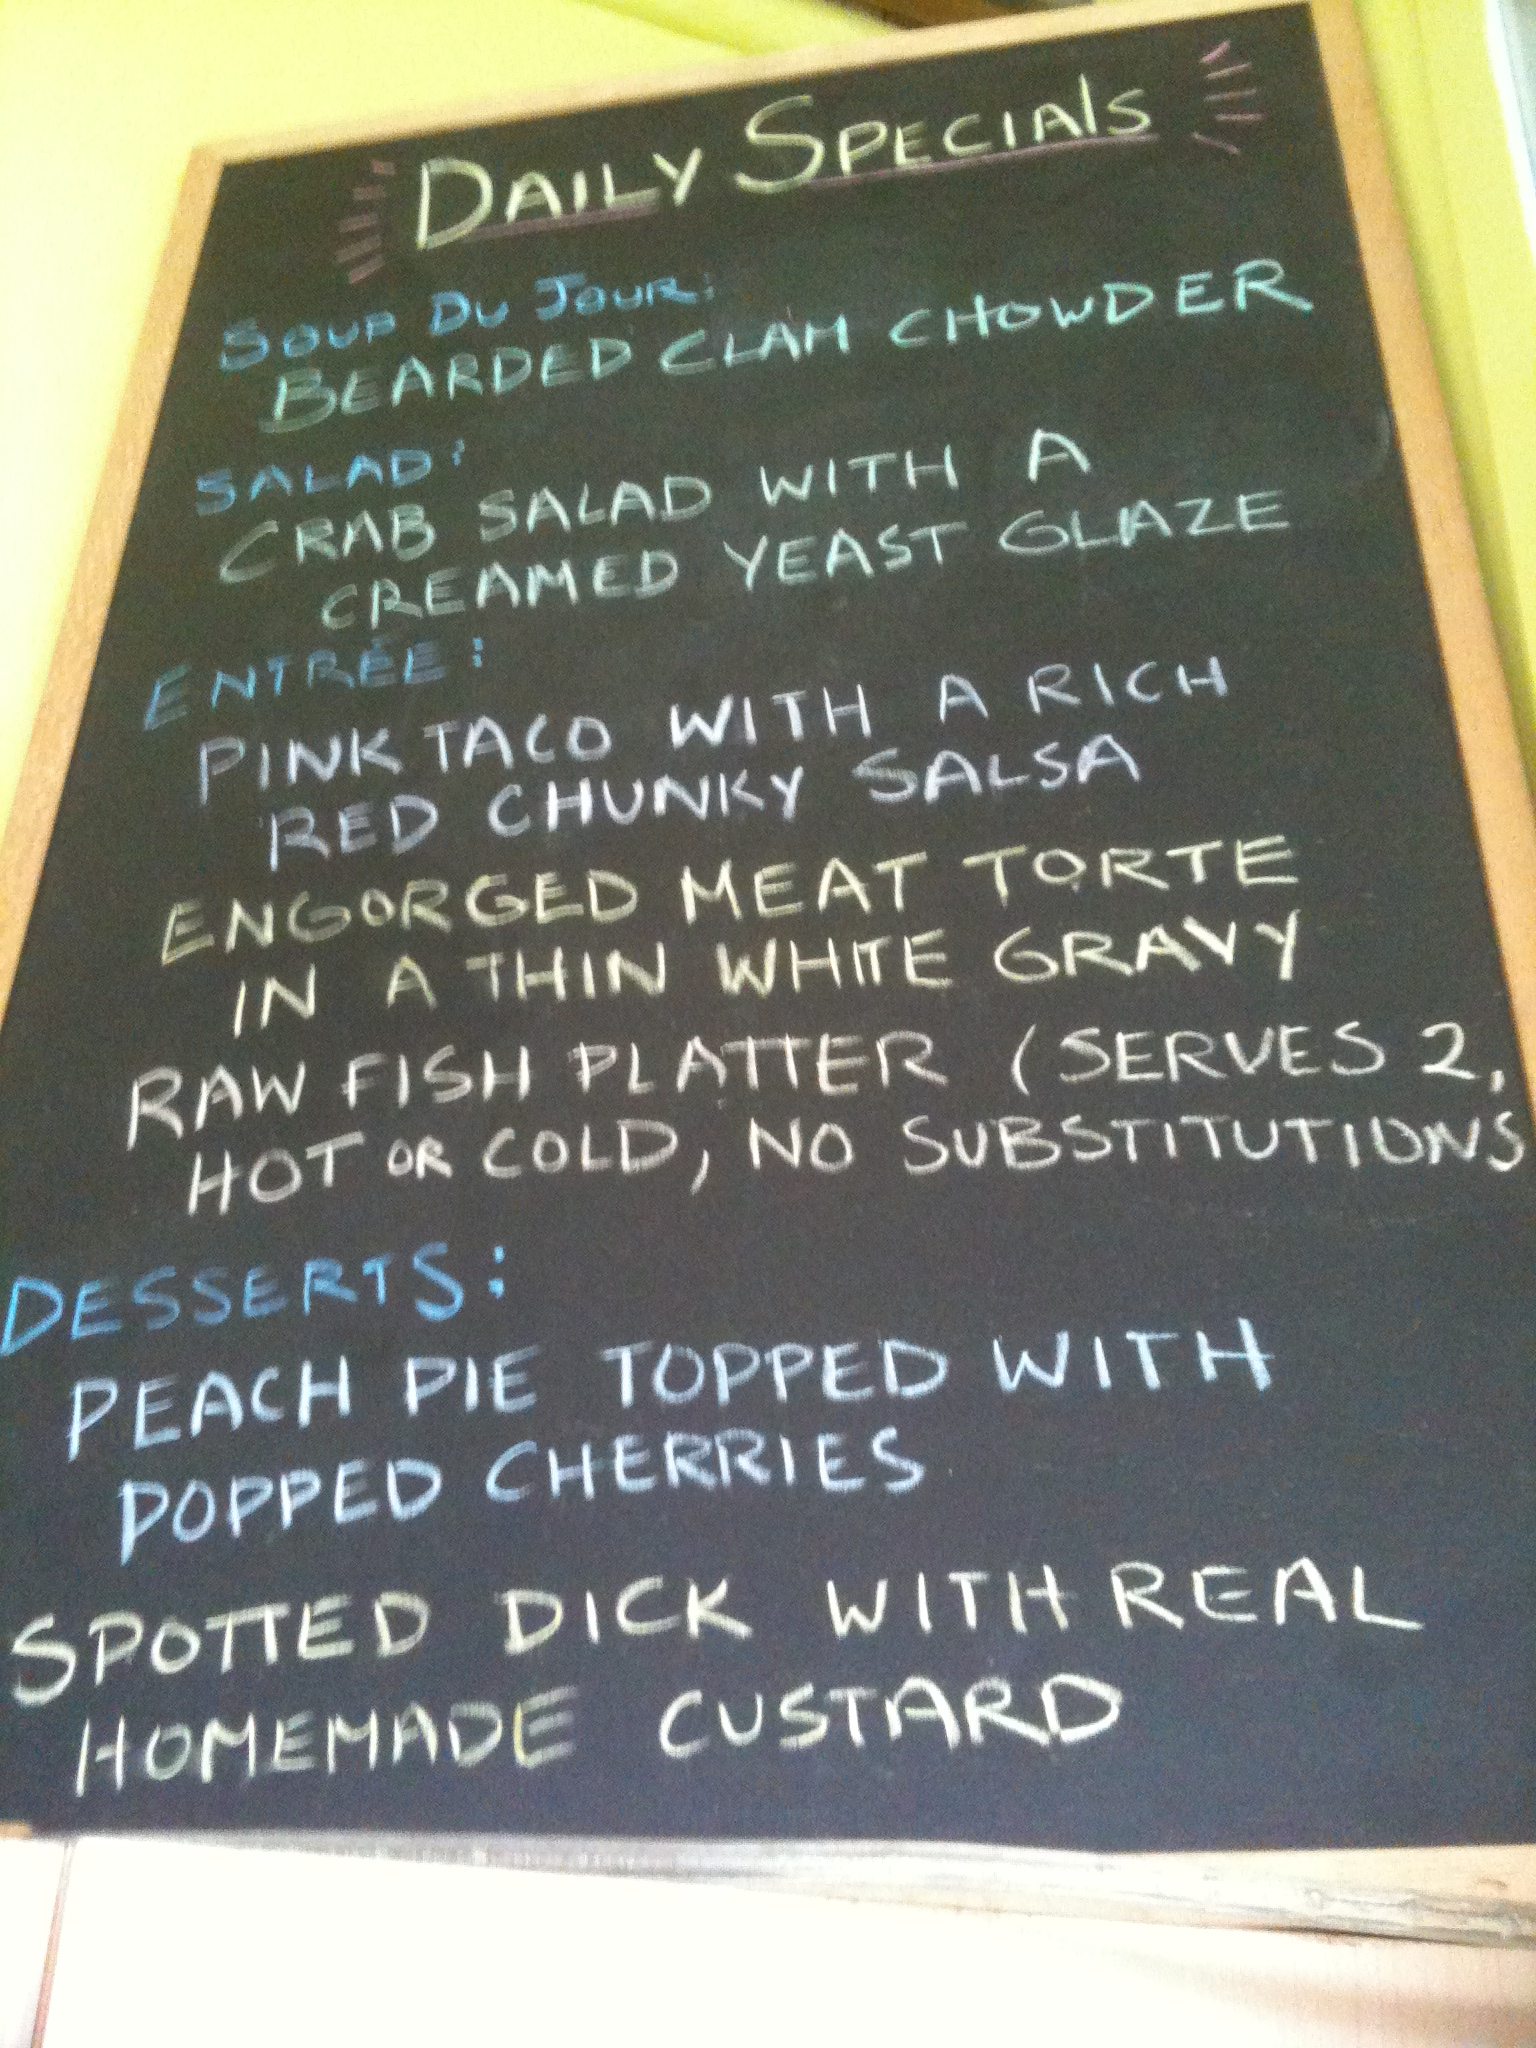 DAILY SPECIAlS
SOUP DU JOUR:
BEARDED CLAM CHOWDER
SALAD:
CRAB SALAD WITH A
CREAMED YEAST GLAZE
ENTRÉE:
PINK TACO WITH A RICH
RED CHUNKY SALSA
ENGORGED MEAT TORTE
IN A THIN WHITE GRAVY
RAW FISH PLATTER (SERVES 2,
HOT OR COLD, NO SUBSTITUTIONS
DESSERTS:
PEACH PIE TOPPED WITH
POPPED CHERRIES
SPOTTED DICK WITH REAL
HOMEMADE CUSTARD